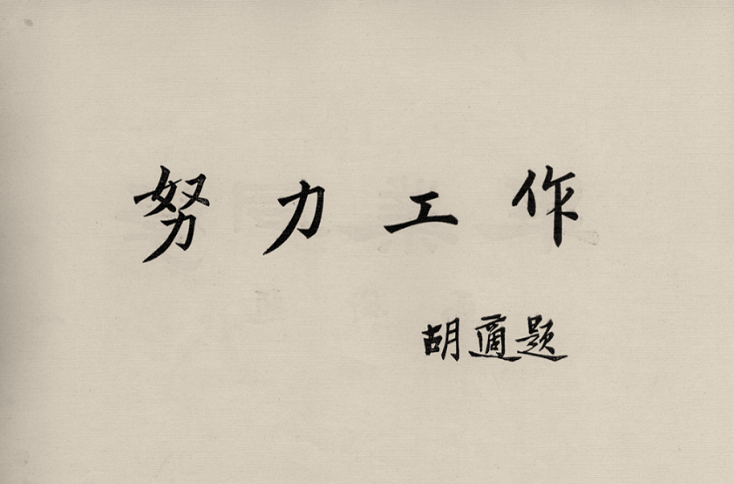 努力工作
胡適題